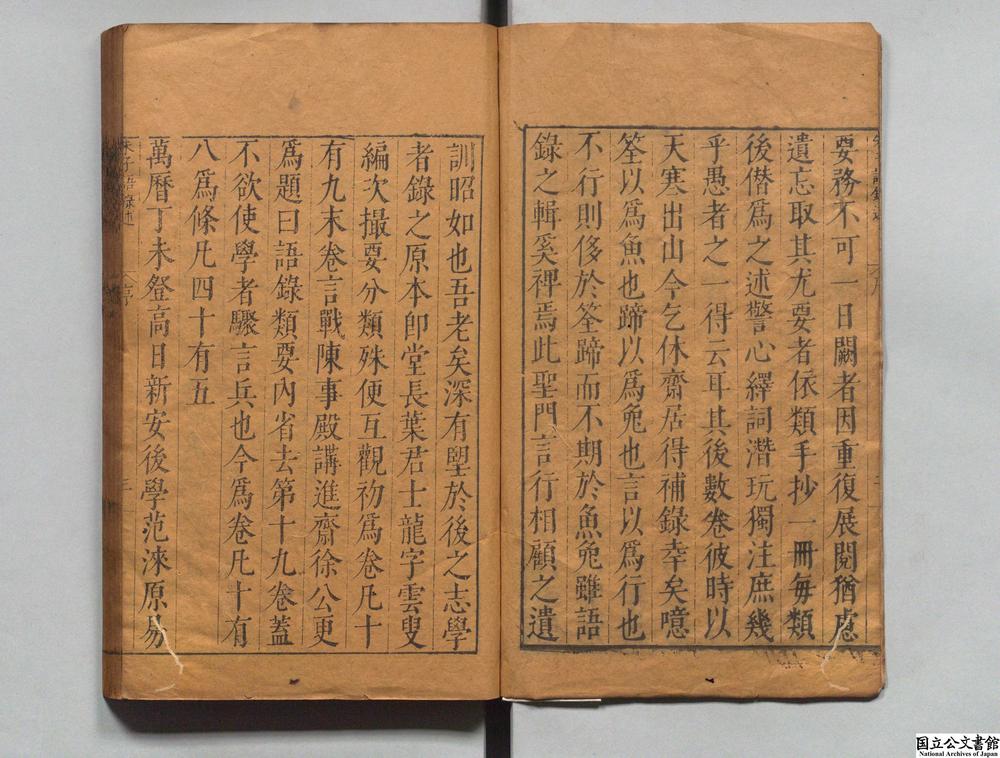 要務不可一日闕者因重復展閱猶慮
遺忘取其尤要者依類手抄一冊每類
後僣為之述警心繹詞潛玩獨注庶幾
乎愚者之一得云耳其後數卷彼時以
天寒出山今乞休齋居得補錄幸矣噫
筌以為魚也蹄以為兔也言以為行也
不行則侈於筌蹄而不期於魚兔雖語
錄之輯奚裨焉此聖門言行相顧之遺
訓昭如也吾老矣深有望於後之志學
者錄之原本卽堂長葉君士龍字雲叟
編次撮要分類殊便互觀初為卷凡十
有九末卷言戰陳事殿講進齋徐公更
為題曰語錄類要內省去第十九卷蓋
不欲使學者驟言兵也今為卷凡十有
八為條凡四十有五
萬曆丁未登高日新安後學范淶原易
朱子語錄述
序
三
国立公文書館
National Archives of Japan